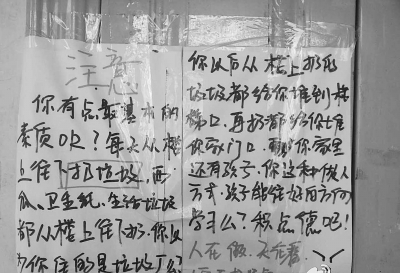 注意
你有点最基本的
素质OR？每天从楼
上往下扔垃圾，西
瓜、卫生纸、生活垃圾
都从楼上往下扔.你以
为你住的是垃圾厂么?
你以后从楼上扔死
垃圾都给你堆到楼
梯口，再扔都给你堆
你家门口，
你家里
还有孩子，你这种做人
方式，孩子能往好的方面
学习么？积点德吧！
人在做.天在看